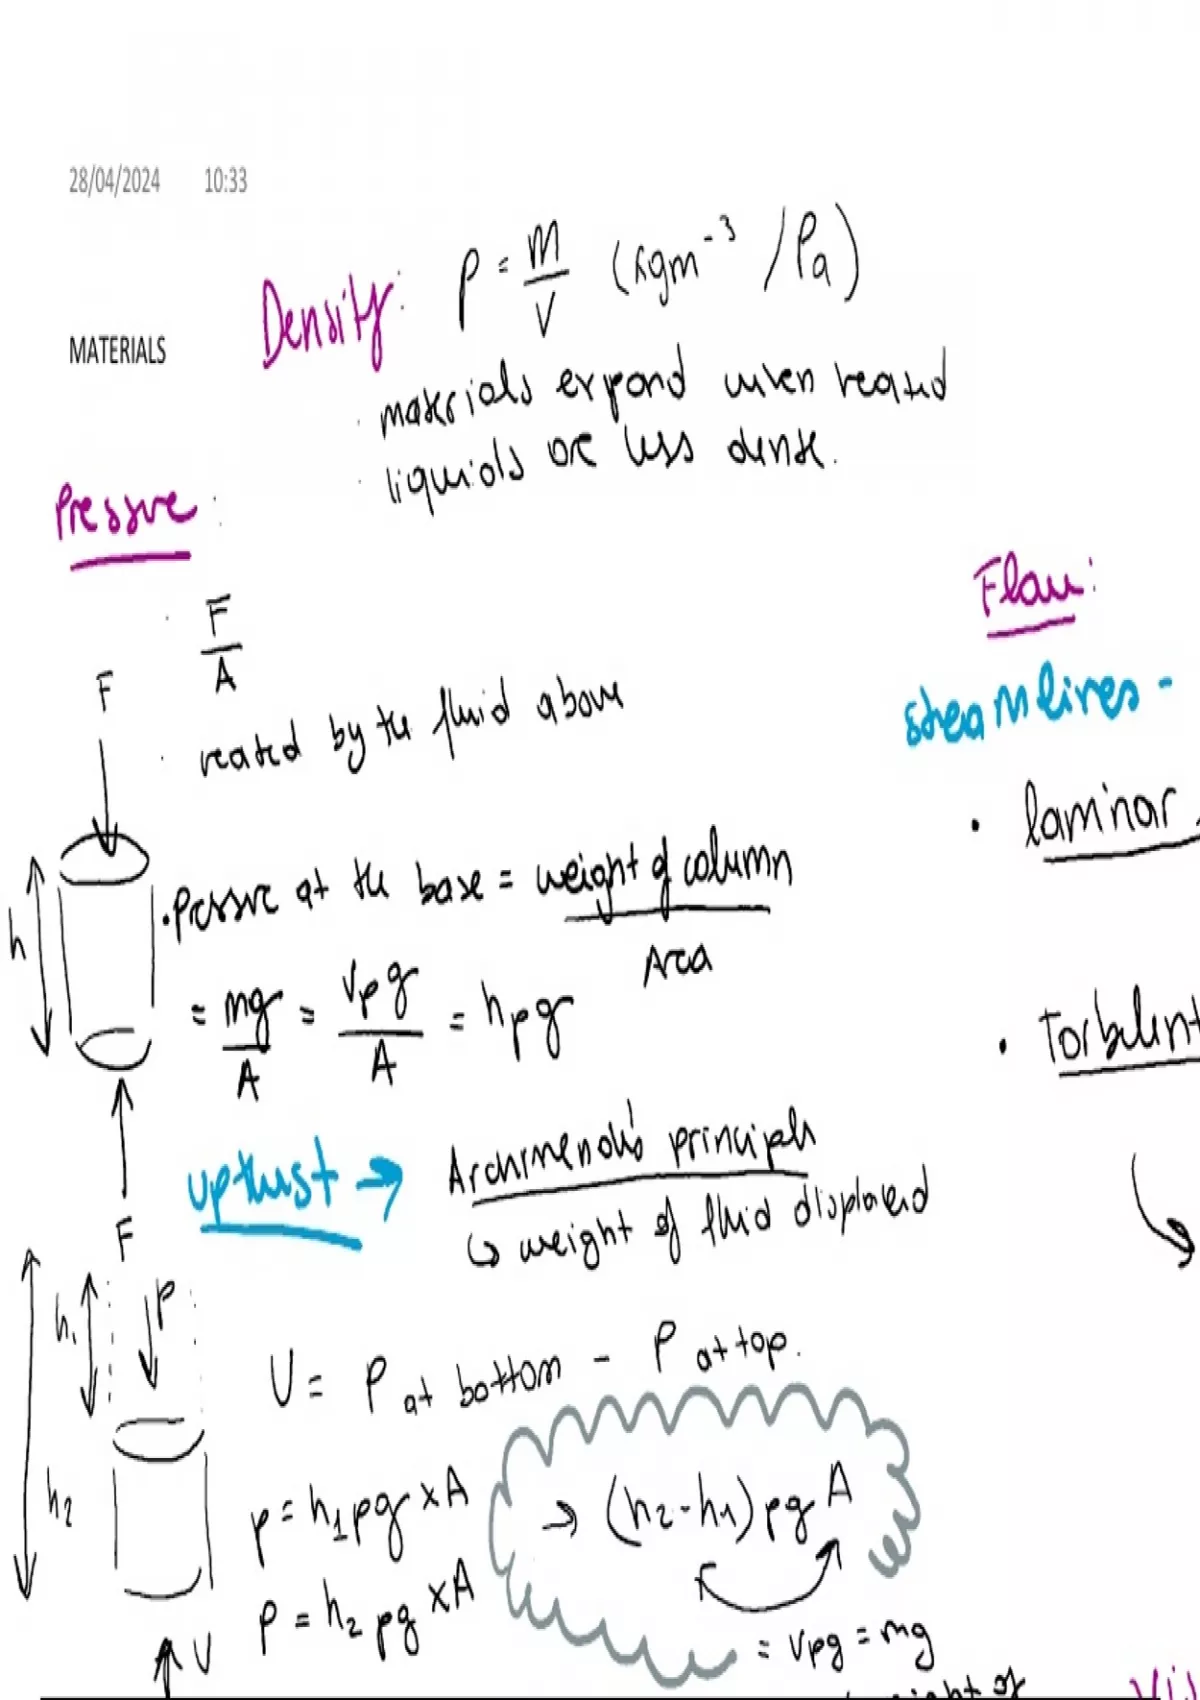 28/04/2024 10:33
MATERIALS
Density: ρ = m/V (kgm⁻³ / Pa)
· materials expand when heated
· liquids are less dense.
Pressure:
· F/A
· created by the fluid above
F
h
· Pressure at the base = weight of column / Area
= mg/A = Vρg/A = hρg
F
upthrust → Archimendis principle
↳ weight of fluid displaced
h₁
P
h₂
U = P at bottom - P at top.
p = h₁ρg × A
p = h₂ρg × A
→ (h₂-h₁)ρg A
= Vρg = mg
U
Flow:
streamlines -
· laminar
· Torbulent